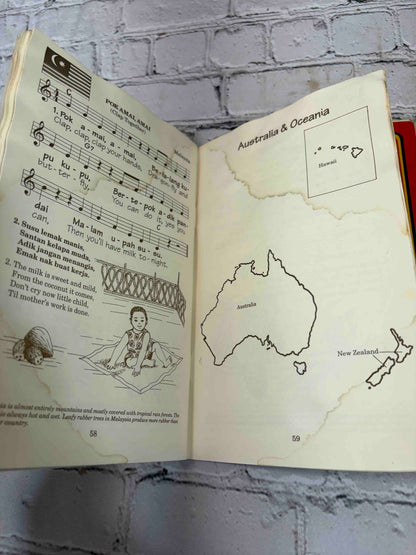 POK AMAI-AMAI
(Clap Together)
Malaysia
C
1. Pok a-mai, a-mai,
Clap, clap, clap your hands,
G7
pu ku-pu, Ber-te-pok a-dik pan-
but-ter-fly. You can do it, yes you
C
dai Ma-lam u-pah su-su.
can, Then you'll have milk to-night.
2. Susu lemak manis,
Santan kelapa muda,
Adik jangan menangis,
Emak nak buat kerja.
2. The milk is sweet and mild,
From the coconut it comes,
Don't cry now little child,
Til mother's work is done.
is almost entirely mountains and mostly covered with tropical rain forests. The
is always hot and wet. Leafy rubber trees in Malaysia produce more rubber than
country.
58
Australia & Oceania
Hawaii
Australia
New Zealand
59